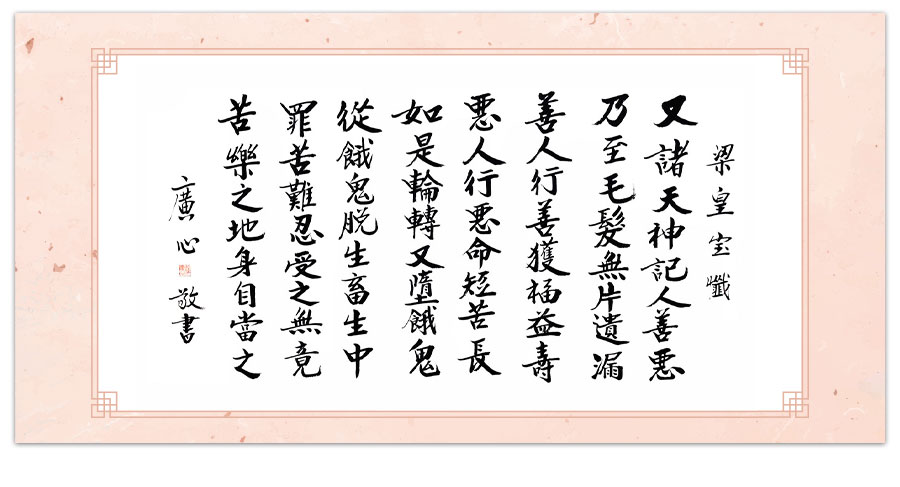 梁皇宝懺
又諸天神記人善惡
乃至毛髮無片遺漏
善人行善獲福益壽
惡人行惡命短苦長
如是輪轉又墮餓鬼
從餓鬼脫生畜生中
罪苦難忍受之無竟
苦樂之地身自當之
廣心敬書